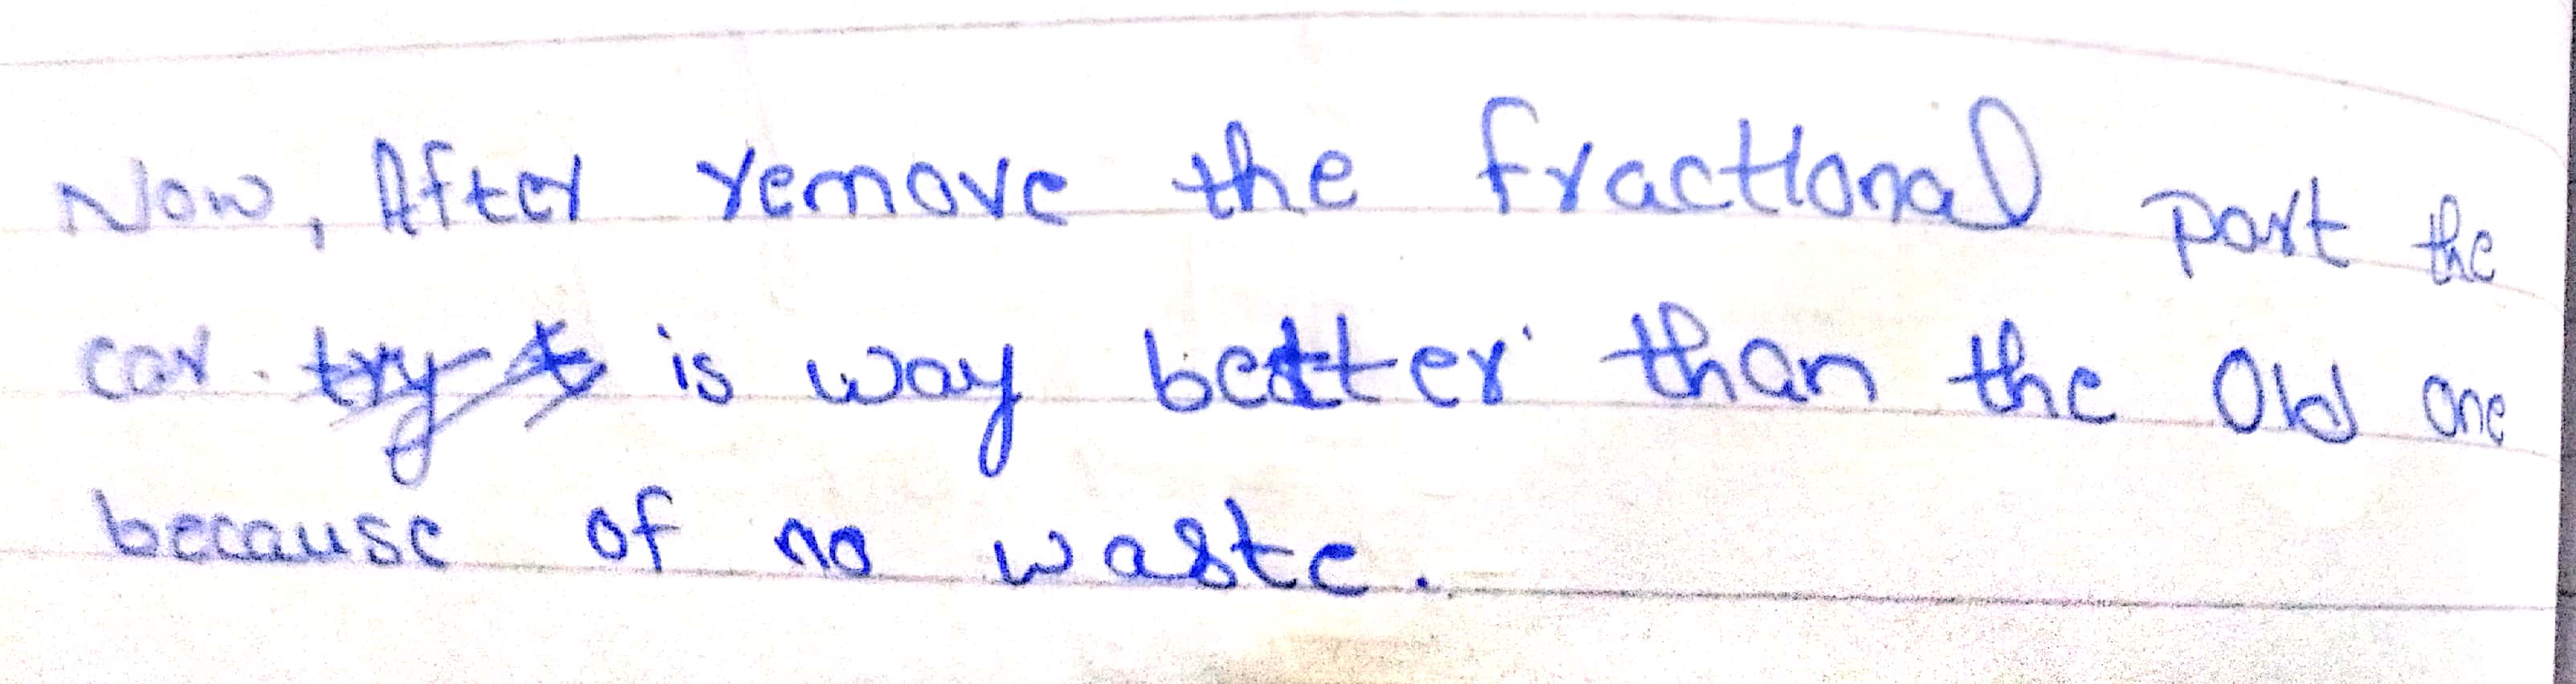 Now, After remove the fractional part the
car. try t is way better than the Old one
because of no waste.